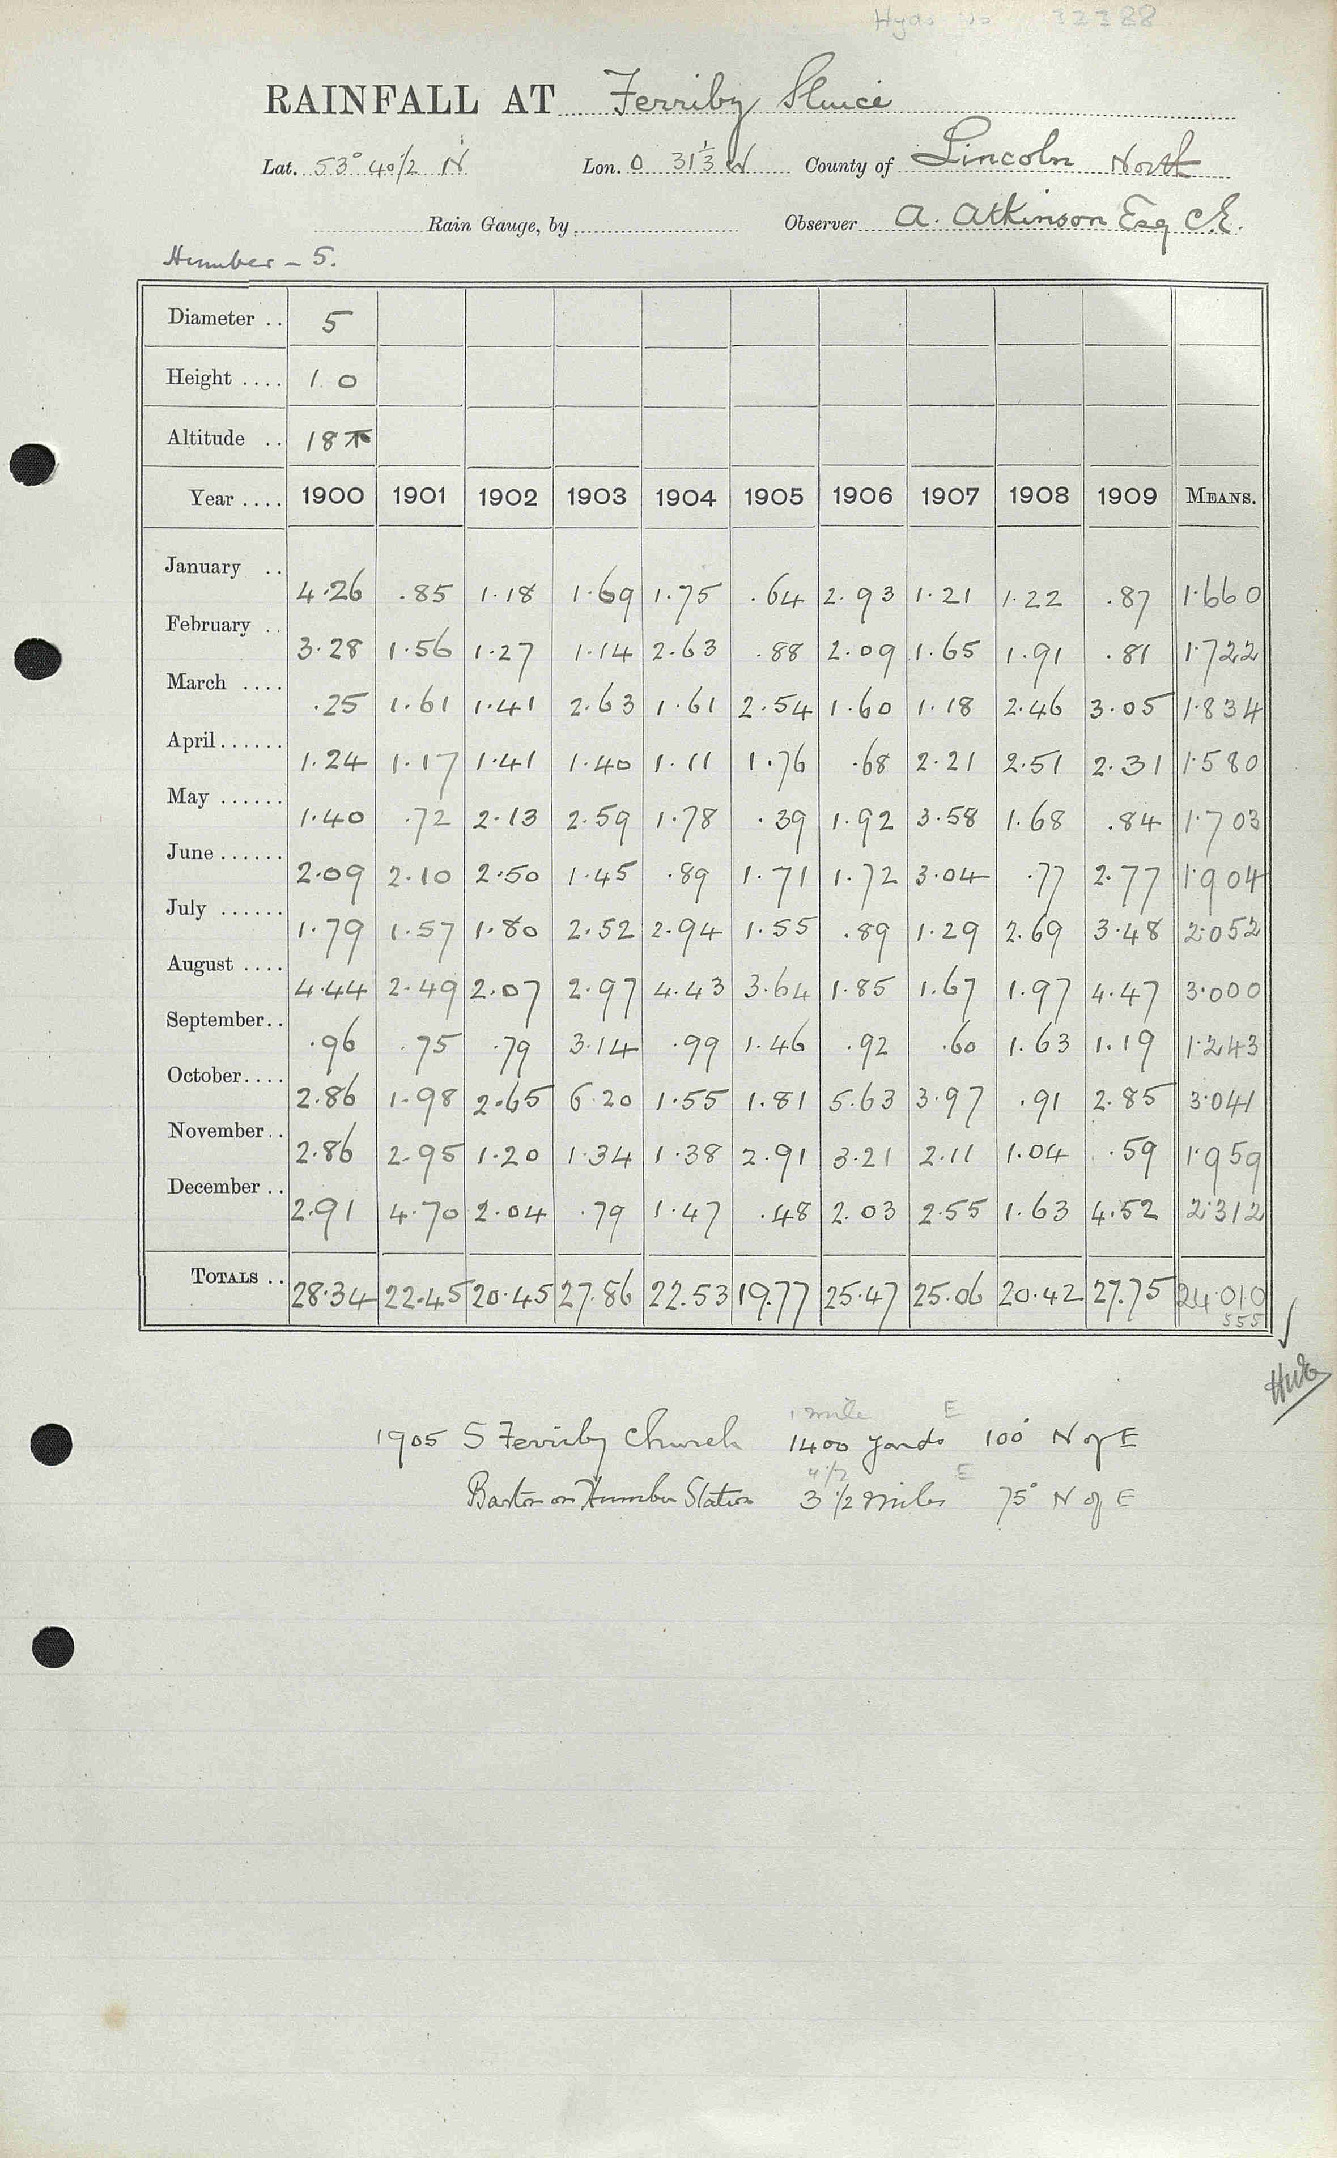 32388
RAINFALL AT Ferriby Sluice
Lat. 53° 40 1/2 N Lon. 0 31 1/3 W County of Lincoln North
Rain Gauge, by Observer A. Atkinson Esq C.E.
Humber - 5.
Diameter .. 5
Height .... 1 0
Altitude .. 18
Year .... 1900 1901 1902 1903 1904 1905 1906 1907 1908 1909 MEANS.
January .. 4.26 .85 1.18 1.69 1.75 .64 2.93 1.21 1.22 .87 1.660
February .. 3.28 1.56 1.27 1.14 2.63 .88 2.09 1.65 1.91 .81 1.722
March .... .25 1.61 1.41 2.63 1.61 2.54 1.60 1.18 2.46 3.05 1.834
April...... 1.24 1.17 1.41 1.40 1.11 1.76 .68 2.21 2.51 2.31 1.580
May ...... 1.40 .72 2.13 2.59 1.78 .39 1.92 3.58 1.68 .84 1.703
June ...... 2.09 2.10 2.50 1.45 .89 1.71 1.72 3.04 .77 2.77 1.904
July ...... 1.79 1.57 1.80 2.52 2.94 1.55 .89 1.29 2.69 3.48 2.052
August .... 4.44 2.49 2.07 2.97 4.43 3.64 1.85 1.67 1.97 4.47 3.000
September.. .96 .75 .79 3.14 .99 1.46 .92 .60 1.63 1.19 1.243
October.... 2.86 1.98 2.65 6.20 1.55 1.81 5.63 3.97 .91 2.85 3.041
November.. 2.86 2.95 1.20 1.34 1.38 2.91 3.21 2.11 1.04 .59 1.959
December .. 2.91 4.70 2.04 .79 1.47 .48 2.03 2.55 1.63 4.52 2.312
TOTALS .. 28.34 22.45 20.45 27.86 22.53 19.77 25.47 25.06 20.42 27.75 24.010
555
1 mile E
1905 S Ferriby Church 1400 yards 100° N of E
4 1/2 E
Barton on Humber Station 3 1/2 miles 75° N of E